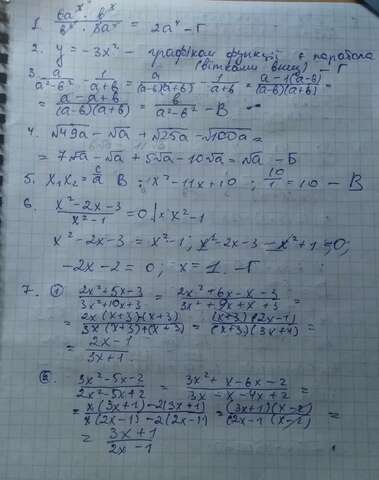 1. 6a^x · b^x / b^x · 3a^x = 2a^x - Г
2. y = -3x² - графіком функції є парабола
(вітками вниз) - Г
3. a/a²-b² - 1/a+b = a/(a-b)(a+b) - 1/a+b = a-1(a-b)/(a-b)(a+b) =
= a-a+b/(a-b)(a+b) = b/a²-b² - В
4. √49a - √a + √25a - √100a =
= 7√a - √a + 5√a - 10√a = √a - Б
5. x₁x₂ = c/a В ; x²-11x+10 ; 10/1 = 10 - В
6. x²-2x-3/x²-1 = 0 | × x²-1
x²-2x-3 = x²-1; x²-2x-3-x²+1=0;
-2x-2=0; x=1. -Г
7. ① 2x²+5x-3/3x²+10x+3 = 2x²+6x-x-3/3x²+9x+x+3 =
= 2x(x+3)-(x+3)/3x(x+3)+(x+3) = (x+3)(2x-1)/(x+3)(3x+1) =
= 2x-1/3x+1.
② 3x²-5x-2/2x²-5x+2 = 3x²+x-6x-2/2x-x-4x+2 =
= x(3x+1)-2(3x+1)/x(2x-1)-2(2x-1) = (3x+1)(x-2)/(2x-1)(x-2) =
= 3x+1/2x-1